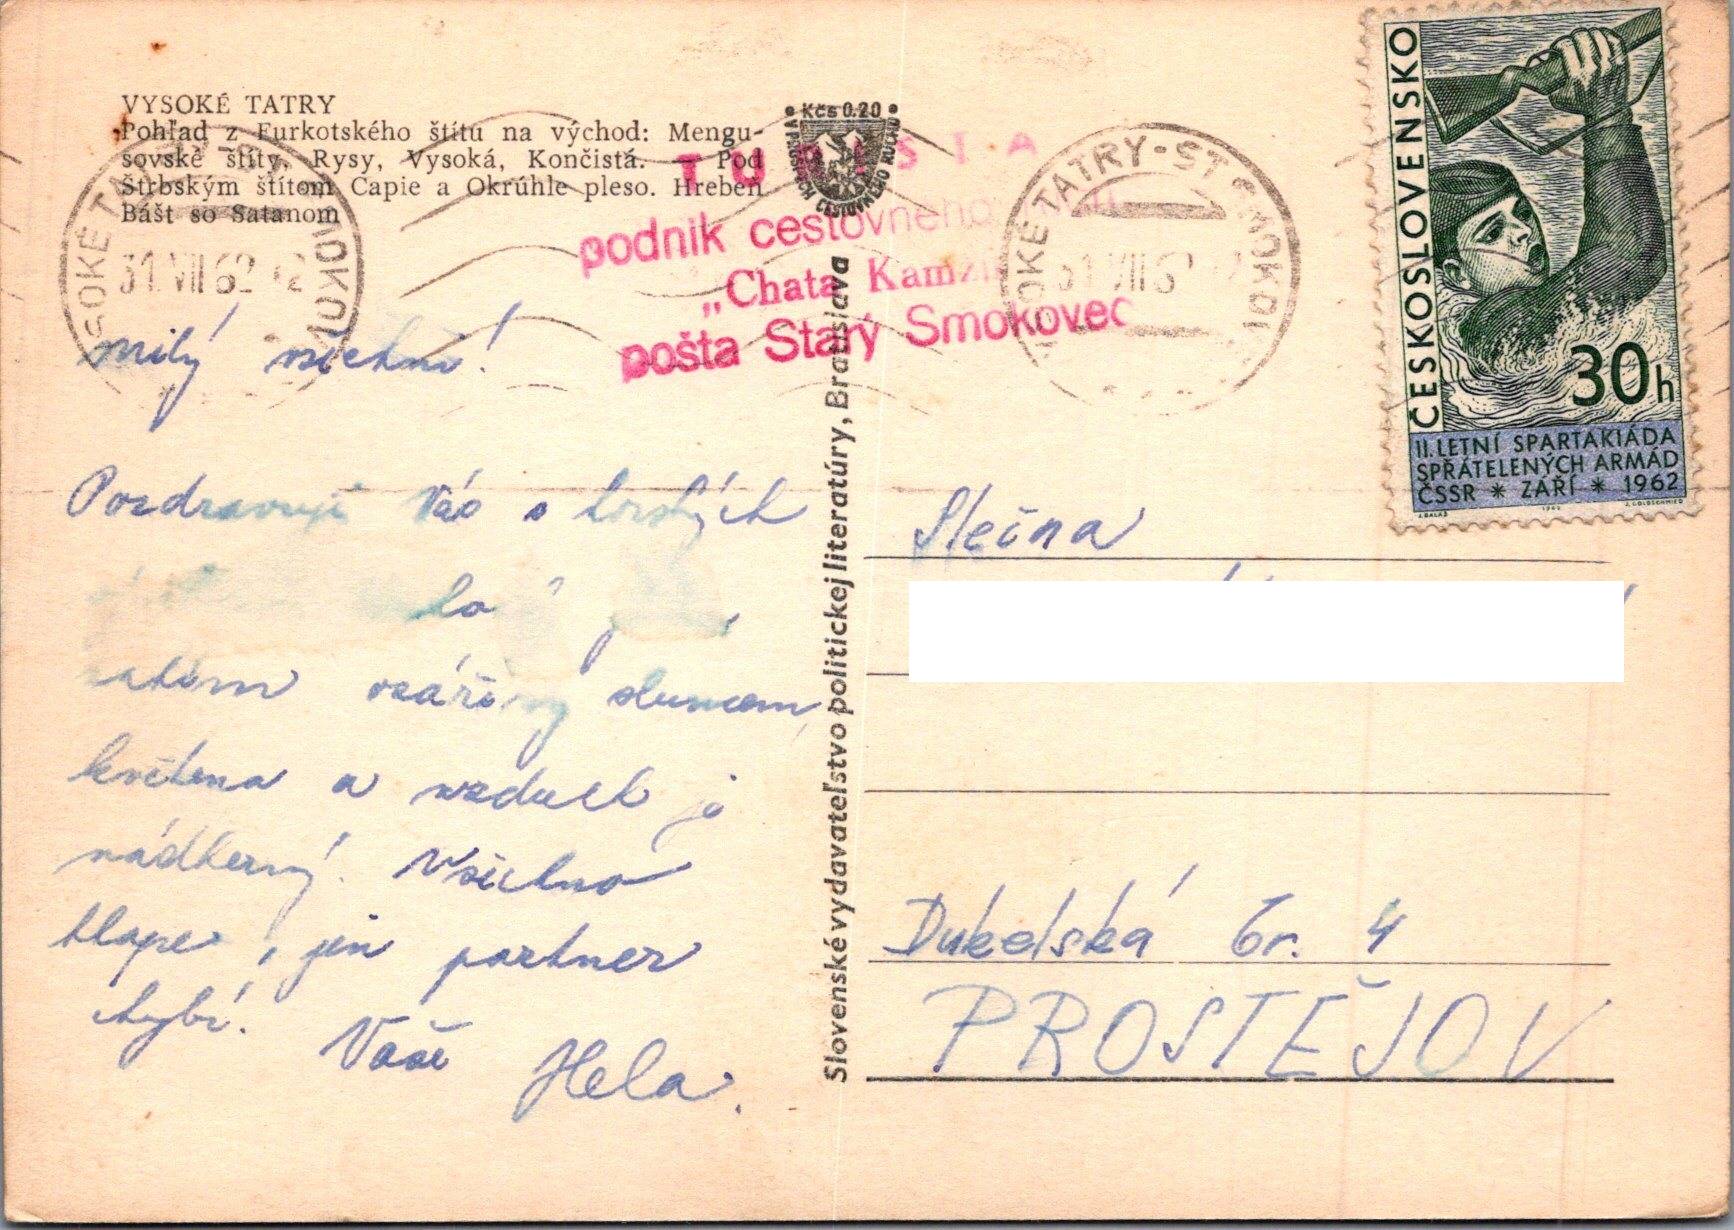 VYSOKÉ TATRY
Pohľad z Furkotského štítu na východ: Mengu-
sovské štíty, Rysy, Vysoká, Končistá. — Pod
Štrbským štítom Capie a Okrúhle pleso. Hrebeň
Bášt so Satanom
Kčs 0.20
TURISTA
podnik cestovného
„Chata Kamzík
pošta Starý Smokovec
VYSOKÉ TATRY-ST. SMOKOVEC
31.VII 62
VYSOKÉ TATRY-ST. SMOKOVEC
31.VII 62
ČESKOSLOVENSKO
30h
II. LETNÍ SPARTAKIÁDA
SPŘÁTELENÝCH ARMÁD
ČSSR * ZÁŘÍ * 1962
J. BALÁŽ 1962 J. GOLDSCHMIED
milý všichni!
Pozdravuji Vás s horských
ozářený sluncem,
květena a vzduch je
nádherný. Všichno
klape, jen partner
chybí.
Vaše Hela.
Slovenské vydavateľstvo politickej literatúry, Bratislava
Slečna
Dukelská br. 4
PROSTĚJOV